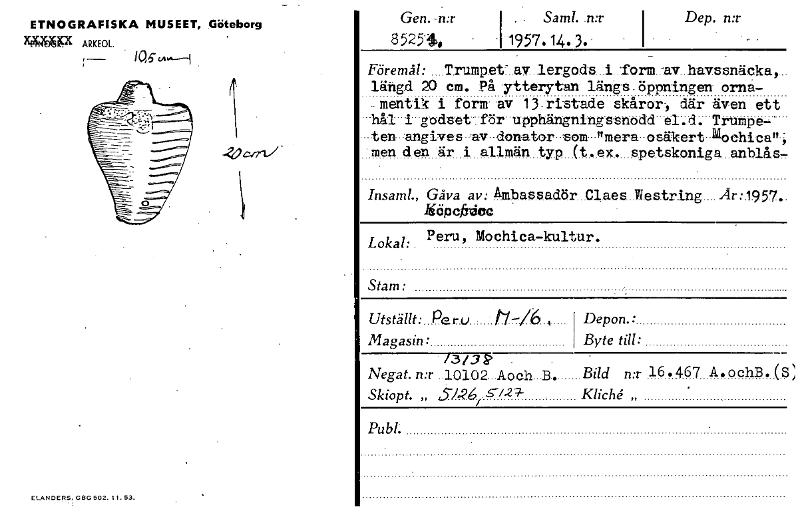 ETNOGRAFISKA MUSEET, Göteborg
ARKEOL.
10,5 cm
20 cm
ELANDERS, GBG 502. 11. 53.
Gen. n:r Saml. n:r Dep. n:r
1957.14.3.
Föremål: Trumpet av lergods i form av havssnäcka,
längd 20 cm. På ytterytan längs öppningen orna-
mentik i form av 13 ristade skåror, där även ett
hål i godset för upphängningssnodd el.d. Trumpe-
ten angives av donator som "mera osäkert Mochica",
men den är i allmän typ (t.ex. spetskoniga anblås-
Insaml., Gåva av: Ambassadör Claes Westring År: 1957.
Lokal: Peru, Mochica-kultur.
Stam:
Utställt: Peru M-16. Depon.:
Magasin: Byte till:
13/38
Negat. n:r 10102 A och B. Bild n:r 16.467 A.ochB.(S)
Skiopt. „ 5126, 5127 Kliché „
Publ.